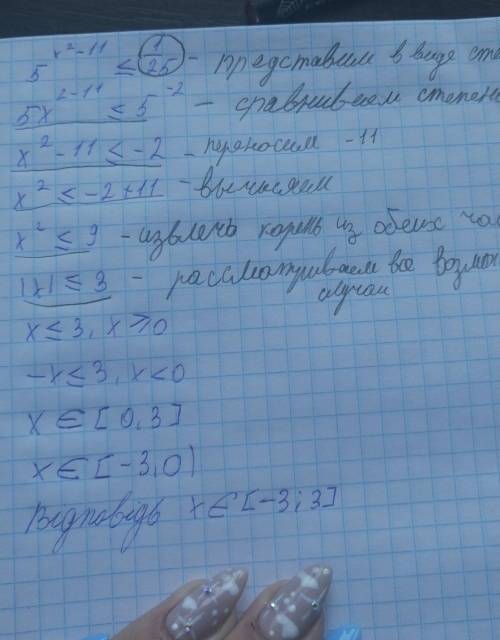 5^{x²-11} ≤ 1/25 - представим в виде
5x^{2-11} ≤ 5^{-2} - сравниваем
x² - 11 ≤ -2 - переносим -11
x² ≤ -2+11 - вычисляем
x² ≤ 9 - извлечь корень из обеих
|x| ≤ 3 - рассматриваем все
случаи
x ≤ 3, x ≥ 0
-x ≤ 3, x < 0
x ∈ [0,3]
x ∈ [-3,0)
Відповідь x ∈ [-3;3]